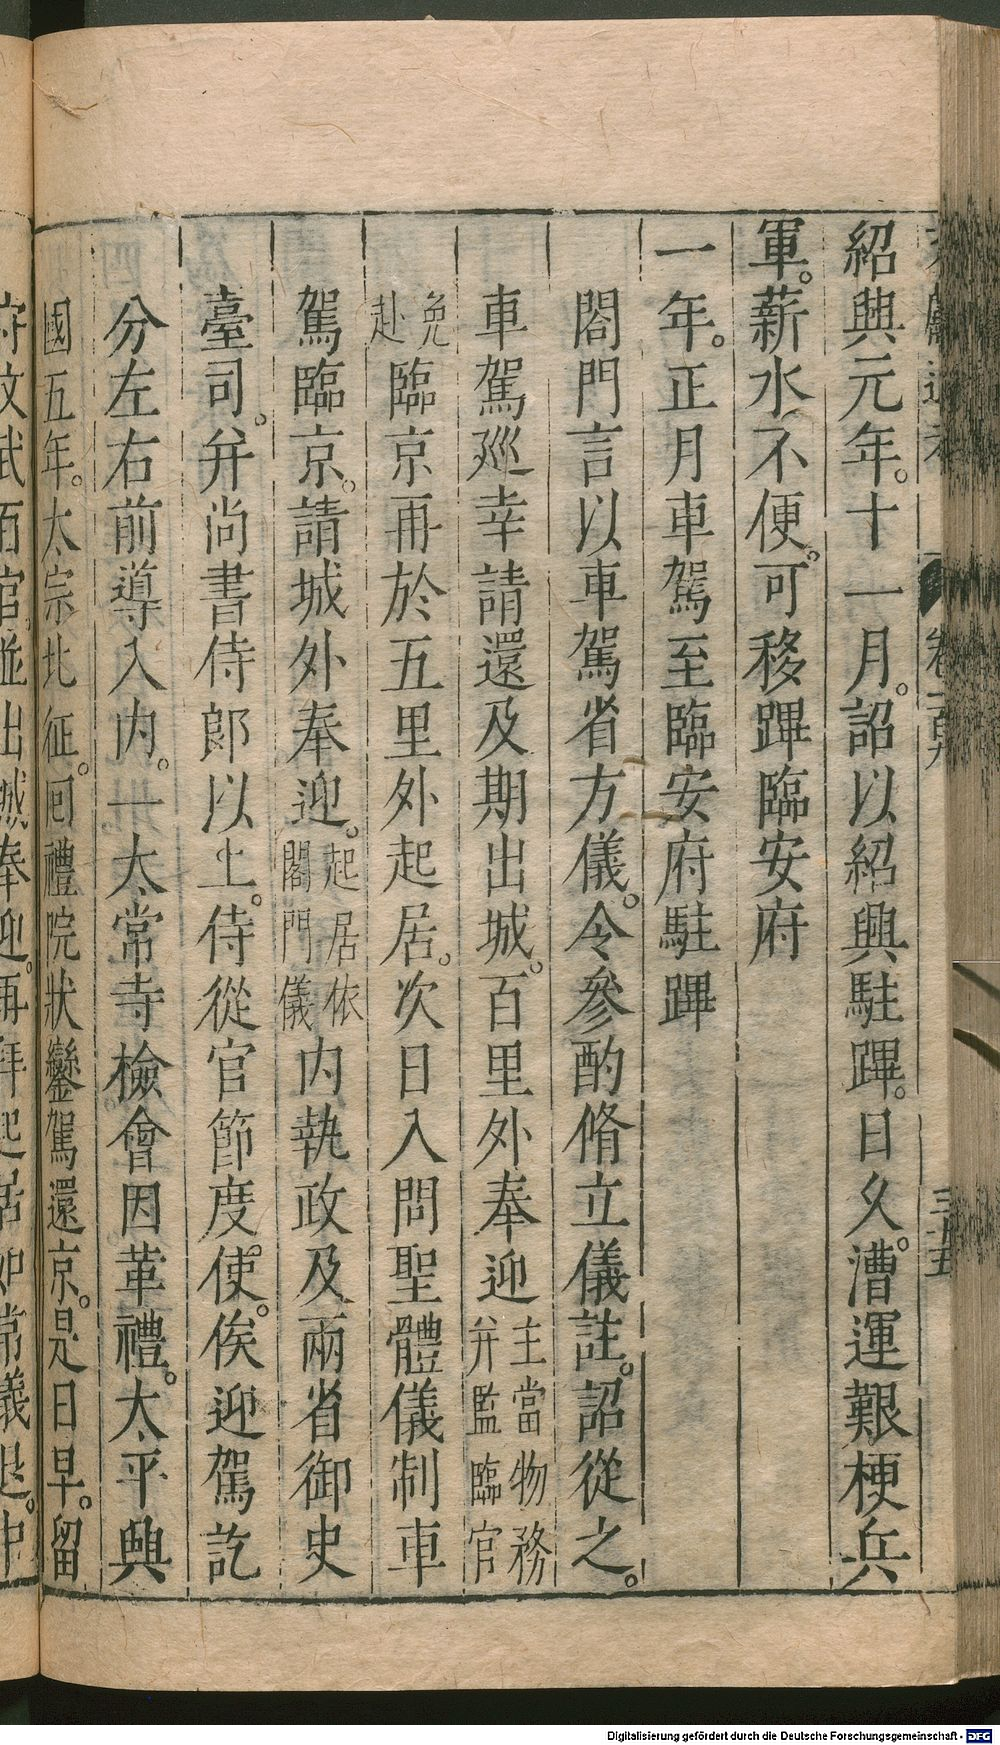 紹興元年。十一月。詔以紹興駐蹕。日久。漕運艱梗兵
軍。薪水不便。可移蹕臨安府
一年。正月車駕至臨安府駐蹕
閤門言以車駕省方儀。令參酌脩立儀註。詔從之。
車駕巡幸請還及期出城。百里外奉迎主當物務并監臨官
免赴臨京再於五里外起居。次日入問聖體儀制車
駕臨京。請城外奉迎。起居依閤門儀内執政及兩省御史
臺司。并尚書侍郎以上。侍從官節度使。俟迎駕訖
分左右前導入内。一太常寺檢會因革禮。太平興
國五年。太宗北征。回禮院狀鑾駕還京。是日早。留
府文武百官並出城奉迎。再拜起居如常儀退。中
卷一百九
三十五
Digitalisierung gefördert durch die Deutsche Forschungsgemeinschaft - DFG